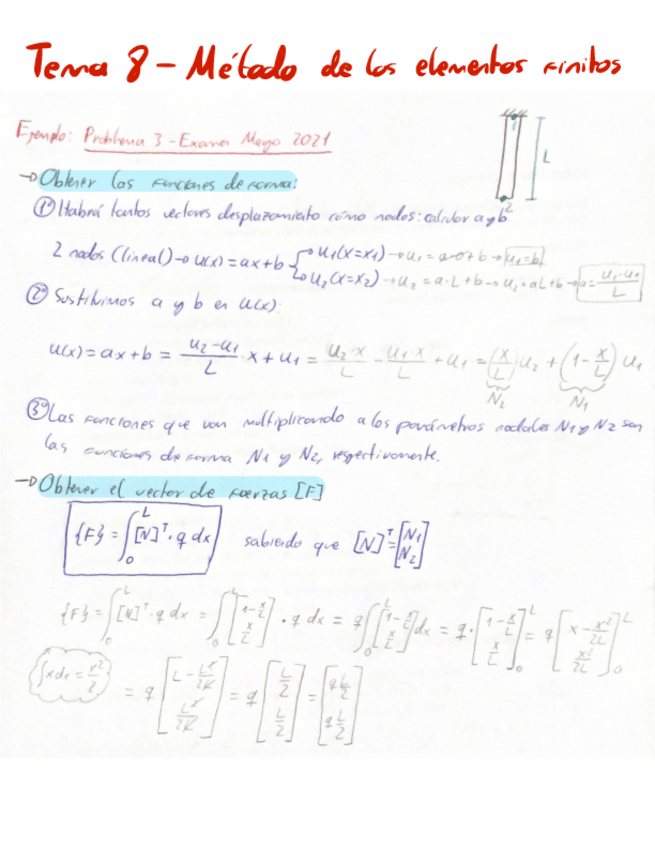 Tema 8 - Método de los elementos finitos
Ejemplo: Problema 3 - Examen Mayo 2021
1
L
2
→ Obtener las funciones de forma:
1º Habrá tantos vectores desplazamiento cómo nodos: calcular a y b
2 nodos (lineal) → u(x) = ax+b { → u₁(x=x₁) → u₁ = a·0+b → u₁=b
→ u₂(x=x₂) → u₂ = a·L+b → u₂ = aL+b → a = (u₂-u₁)/L
2º Sustituimos a y b en u(x):
u(x) = ax+b = (u₂-u₁)/L · x + u₁ = (u₂·x)/L - (u₁·x)/L + u₁ = (x/L) u₂ + (1 - x/L) u₁
N₂ N₁
3º Las funciones que van multiplicando a los parámetros nodales N₁ y N₂ son
las funciones de forma N₁ y N₂, respectivamente.
→ Obtener el vector de fuerzas [F]
{F} = ∫₀ᴸ [N]ᵀ · q dx sabiendo que [N]ᵀ = [N₁ N₂]
{F} = ∫₀ᴸ [N]ᵀ · q dx = ∫₀ᴸ [1 - x/L; x/L] · q dx = q ∫₀ᴸ [1 - x/L; x/L] dx = q · [1 - x/L; x/L]₀ᴸ = q [x - x²/2L; x²/2L]₀ᴸ
∫x dx = x²/2
= q [L - L²/2L; L²/2L] = q [L/2; L/2] = [q L/2; q L/2]